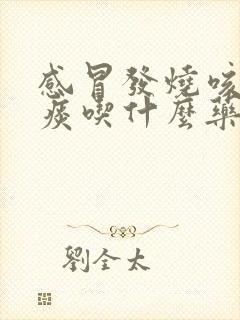 感冒發燒咳
痰喫什麼藥
劉全太